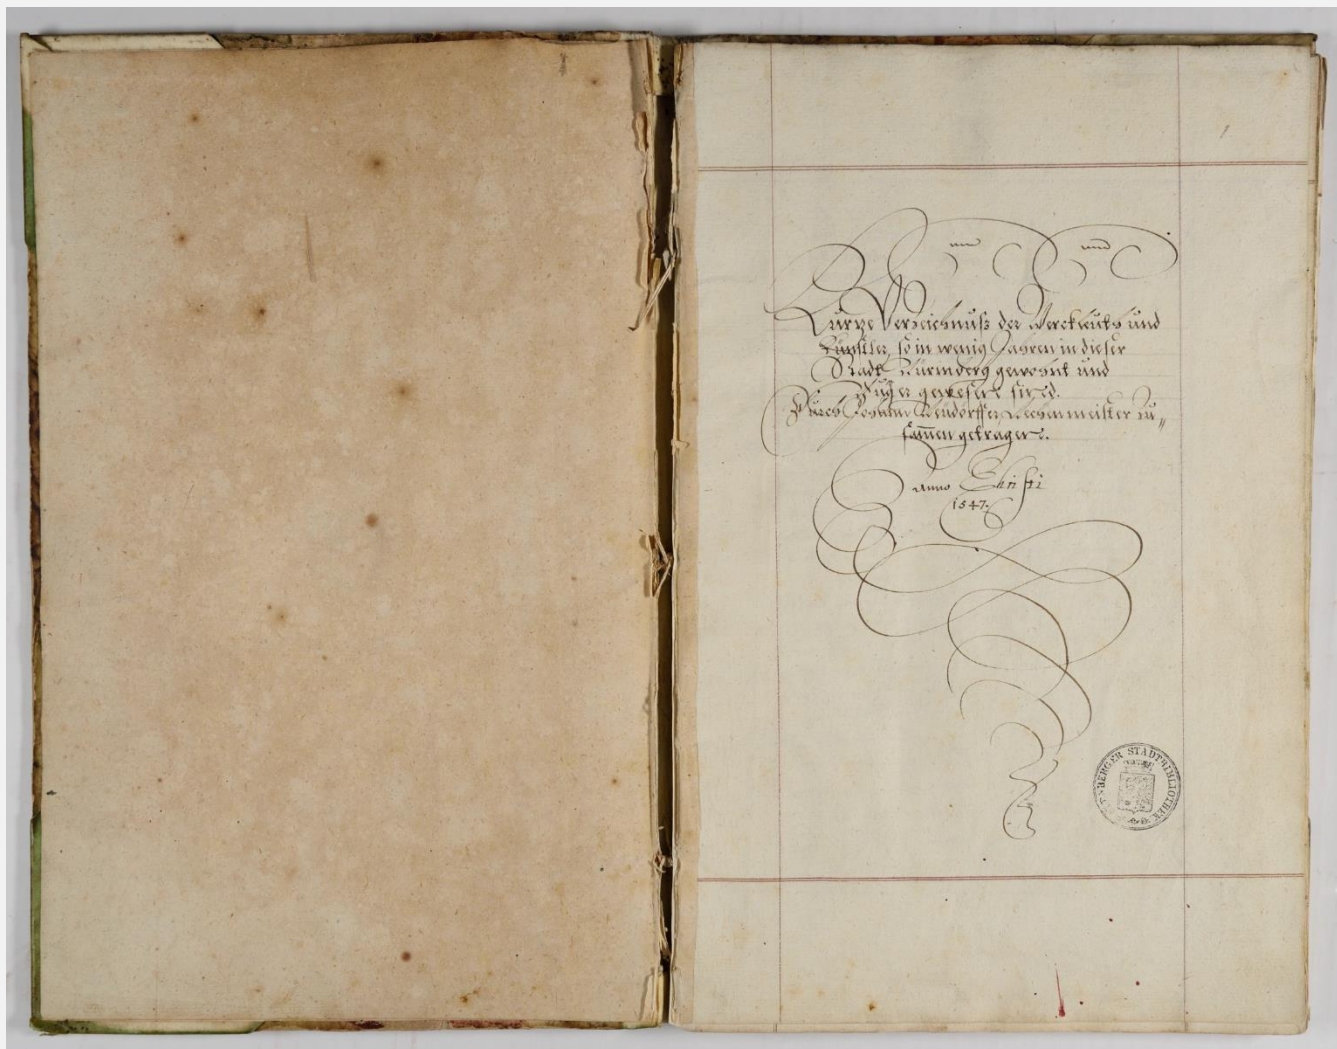 1
Kurtze Verzeichnuß der Werckleuth und
Künstler, so in wenig Jahren in dieser
Stadt Nürmberg gewohnt und
Burger gewesen sind.
Durch Johann Neudörffer, Rechenmeister zu-
samen getragen.
Anno Christi
1547.
NÜRNBERGER STADTBIBLIOTHEK